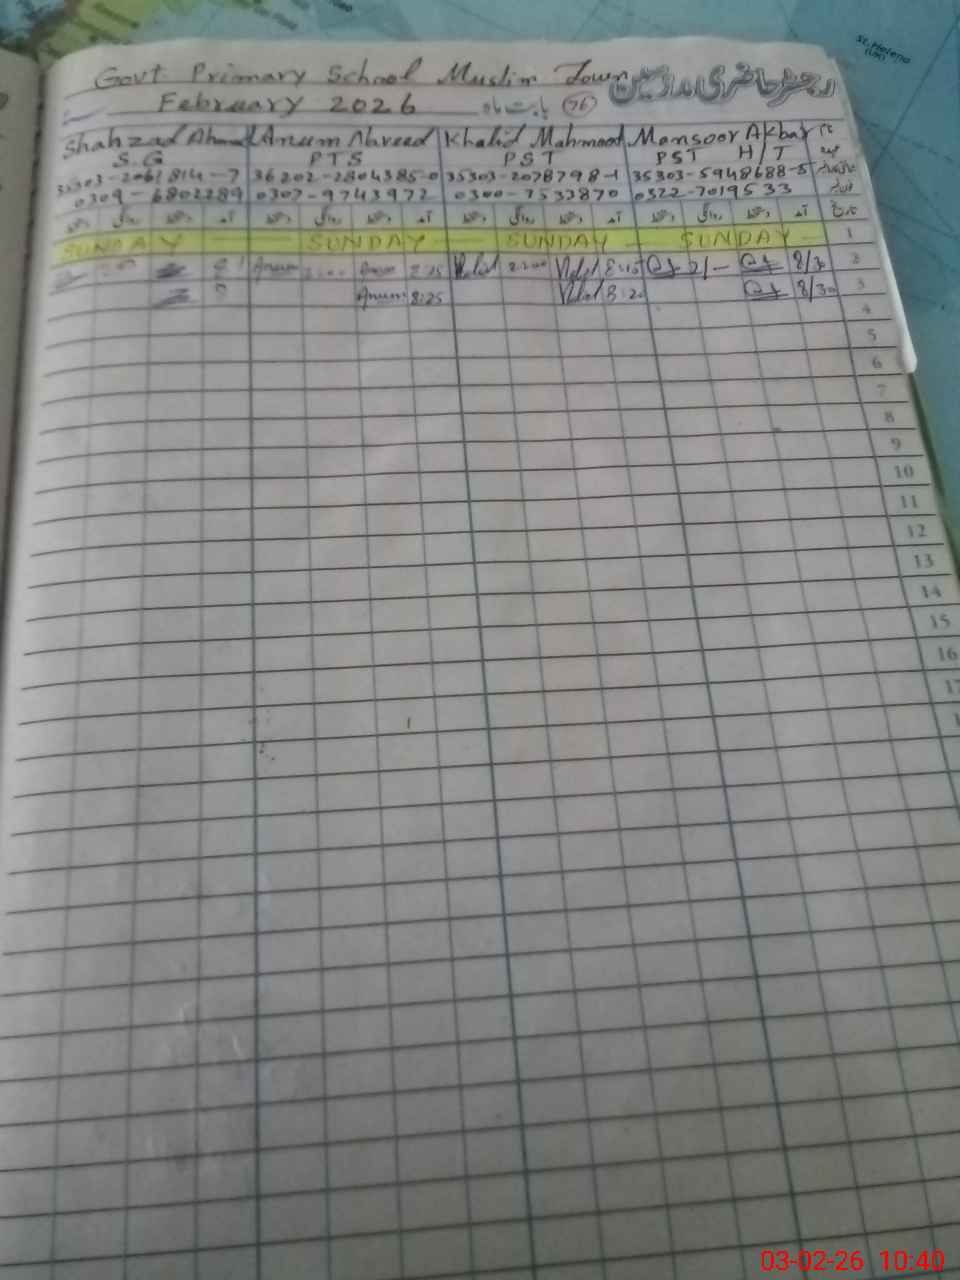 St. Helena
(UK)
Govt. Primary School Muslim Town رجسٹر حاضری مدرسین
February 2026 بابت ماہ (76)
Shahzad Ahmad Anum Naveed Khalid Mahmood Mansoor Akbar نام
S.G PTS PST PST H/T عہدہ
35303-2061814-7 36202-2804385-0 35303-2078798-1 35303-5948688-5
0309-6802289 0307-9743972 0300-7533870 0322-7019533
دستخط روانگی دستخط آمد دستخط روانگی دستخط آمد دستخط روانگی دستخط آمد دستخط روانگی دستخط آمد تاریخ
SUNDAY SUNDAY SUNDAY SUNDAY 1
Anum 2:00 Anum 8:25 Khalid 2:00 8:15 2/- 8/30 2
Anum 8:25 8:20 8/30 3
4
5
6
7
8
9
10
11
12
13
14
15
16
17
03-02-26 10:40